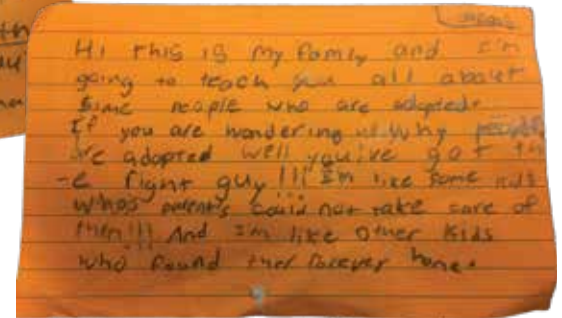 Hi this is my family and I'm
going to teach you all about
some people who are adopted.
If you are wondering why people
are adopted well you've got th
-e right guy!!! I'm like some kids
whos parents could not take care of
them!!! And I'm like other kids
who found ther forever home.